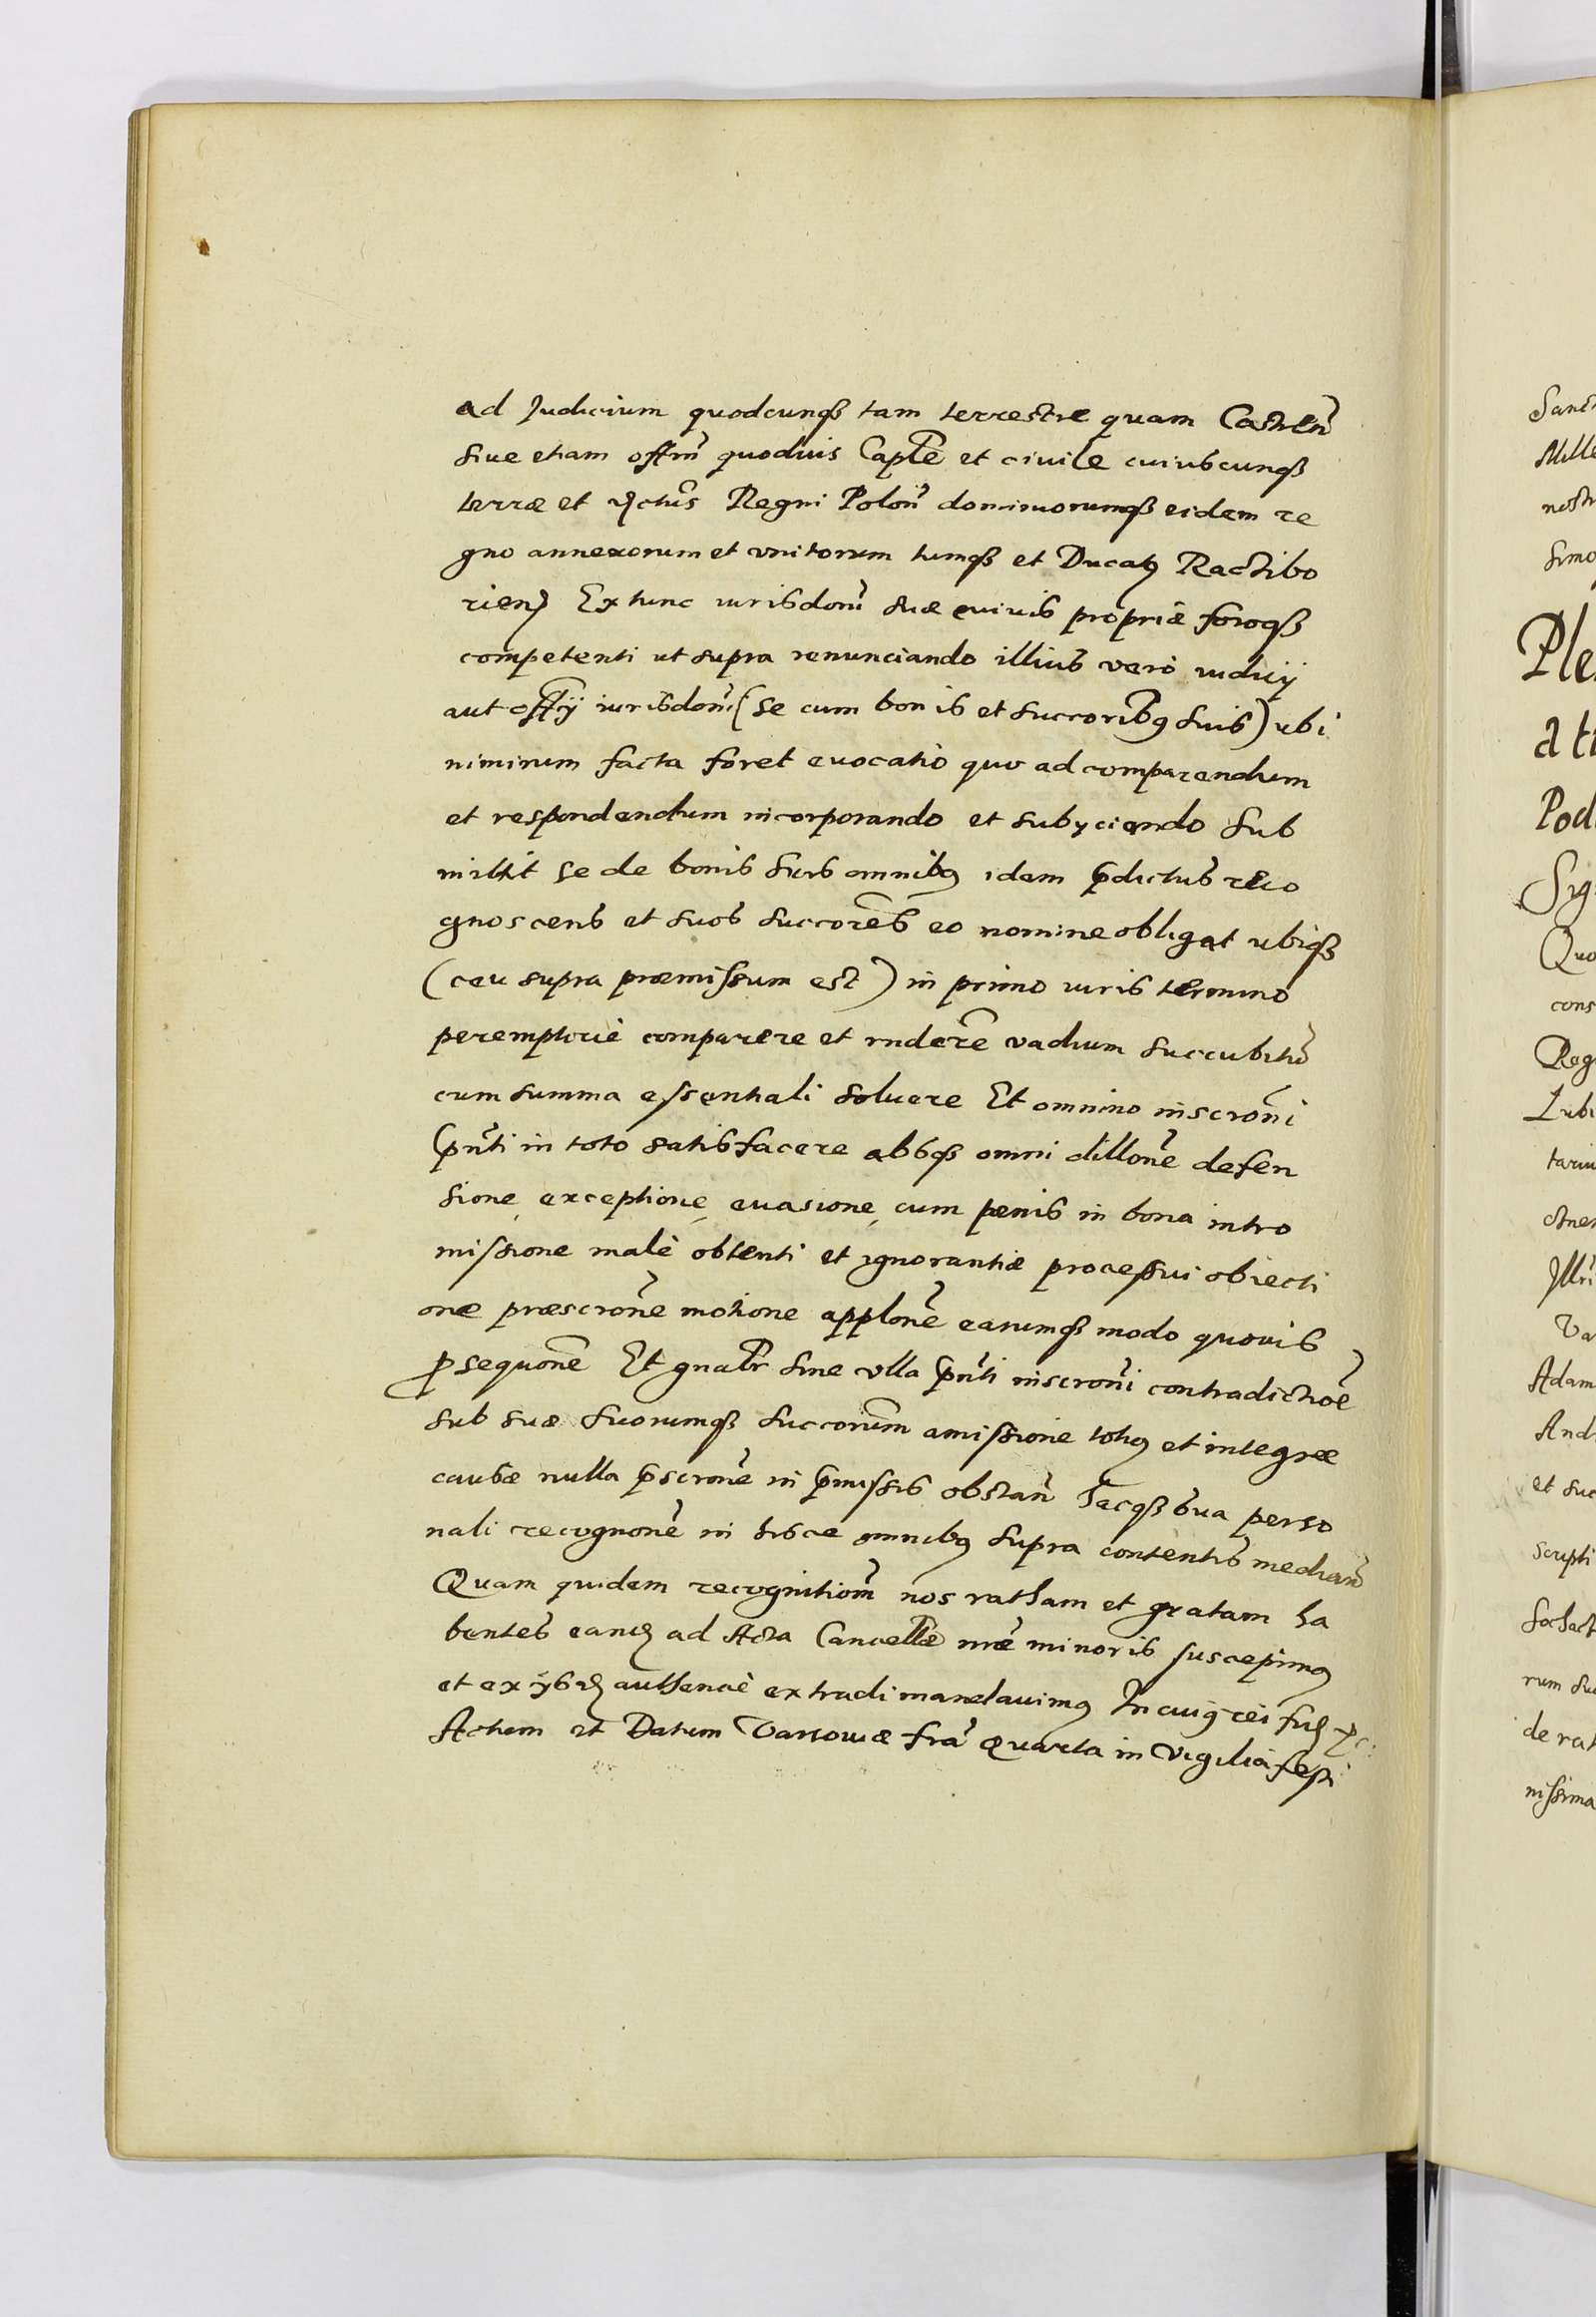 ad Judicium quodcunq tam terrestre quam Castren
siue etiam offm quoduis Caplē et ciuile cuiuscunq
terræ et dctūs Regni Polon̄ dominiorumq eidem re
gno annexorum et vnitorum tumq et Ducatꝰ Ractibo
rien Ex tunc iurisdoni suæ cuiuis propriæ foroq
competenti ut supra renunciando illius verò iudicij
aut offij iurisdoni (se cum bonis et succoribꝰ suis) ubi
nimirum facta foret euocatio quo ad comparendum
et respondendum incorporando et subyciendo Sub
mittit se de bonis suis omnibꝰ idem p̄dictus reco
gnoscens et suos succorēs eo nomine obligat ubiq
(ceu supra præmissum est) in primo iuris termino
peremptoriè comparere et rnderē vadium succubitū
cum summa essentiali soluere Et omnino inscroni
p̄nti in toto satisfacere absq omni dillonē defen
sione, exceptione, euasione, cum pœnis in bona intro
missione malè obtenti et ignorantiæ processui obiecti
one præscronē motione applonē earumq modo quouis
ꝓsequonē Et gnalr sine vlla p̄nti inscroni contradictioē
sub suæ suorumq succorum amissione totiꝰ et integræ
causæ nulla p̄scronē in p̄missis obstan̄ Hacq sua perso
nali recognonē in hisce omnibꝰ supra contentis median̄
Quam quidem recognitiom nos ratham et gratam ha
bentes eand ad Acta Cancellæ nræ minoris suscepimꝰ
et ex ijsd authenticè extradi mandauimꝰ In cuiꝰ rei fid
Actum et Datum Varsouiæ fra quarta in Vigilia festi
Sanct
Mille
nostr
simo
Ple
a ti
Pod
Sig
Quo
cons
Reg
Lub
tariu
Illri
Va
Adam
And
et suc
scripti
Sochact
rum su
de rat
nissima